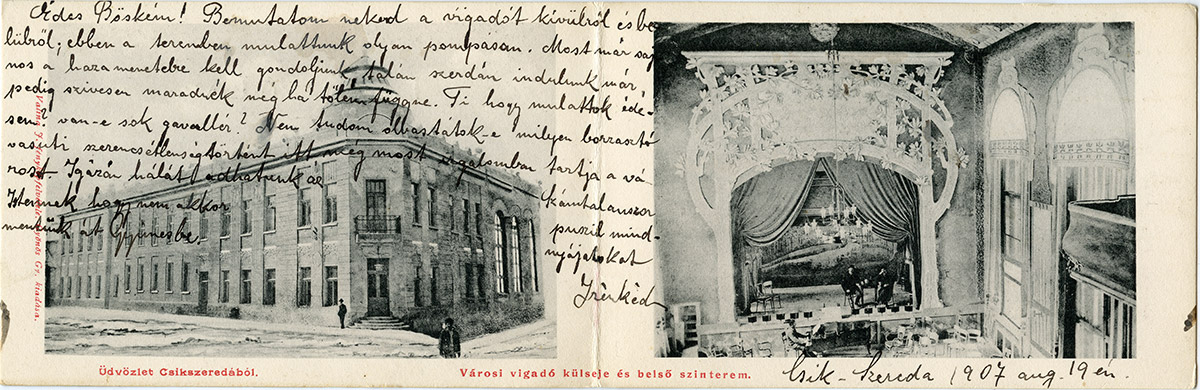 Édes Böském! Bemutatom neked a vigadót kívülről és be
lülről; ebben a teremben mulattunk olyan pompásan. Most már saj
nos a hazamenetelre kell gondoljunk talán szerdán indulunk már,
pedig szivesen maradnék még ha tőlem függne. Ti hogy mulattok éde-
seim? van-e sok gavallér? Nem tudom olvastátok-e milyen borzasztó
vasuti szerencsétlenség történt itt még most izgalomban tartja a vá-
rost. Igazán hálát adhatunk az
Istennek hogy nem akkor
mentünk át Gyimesbe.
Számtalanszor
puszil mind-
nyájatokat
Irénkéd
Üdvözlet Csikszeredából.
Városi vigadó külseje és belső szinterem.
Csik-Szereda 1907 aug. 19 én.
Gy. kiadása.